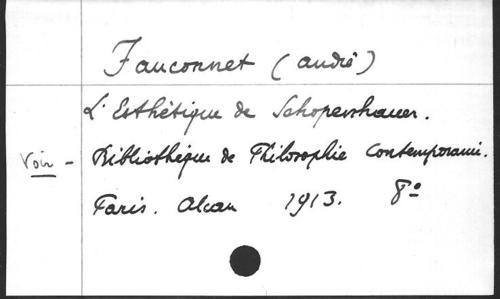 Fauconnet (André)
L'Esthétique de Schopenhauer.
Voir - Bibliothèque de Philosophie Contemporaine.
Paris. Alcan 1913. 8°